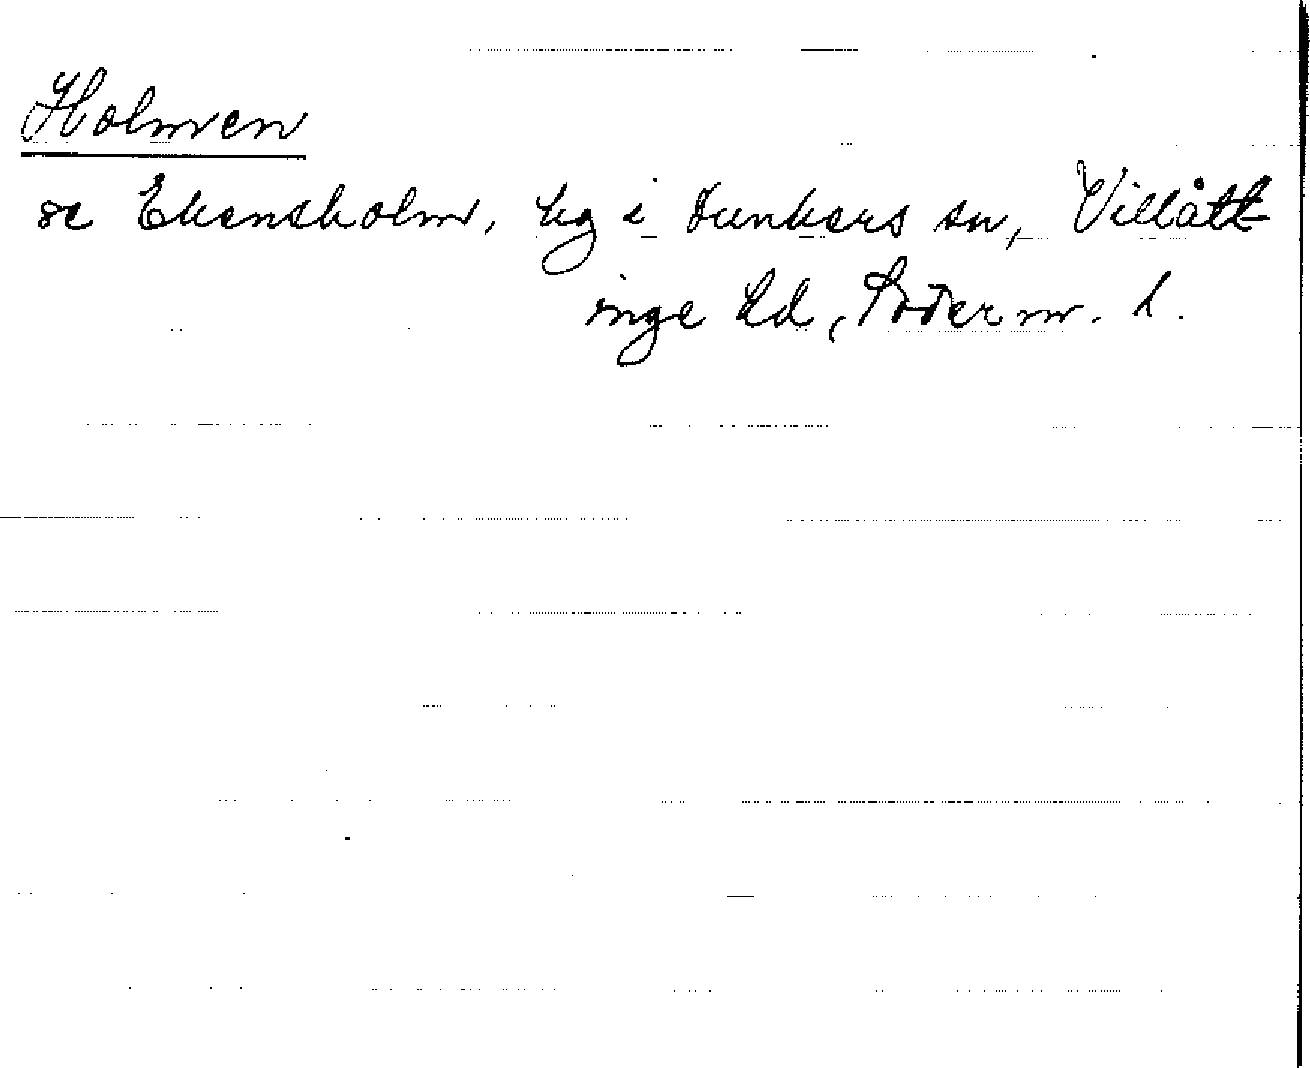 Holmen
se Ekensholm, hg i Dunkers sn, Villått-
inge hd, Söderm. l.